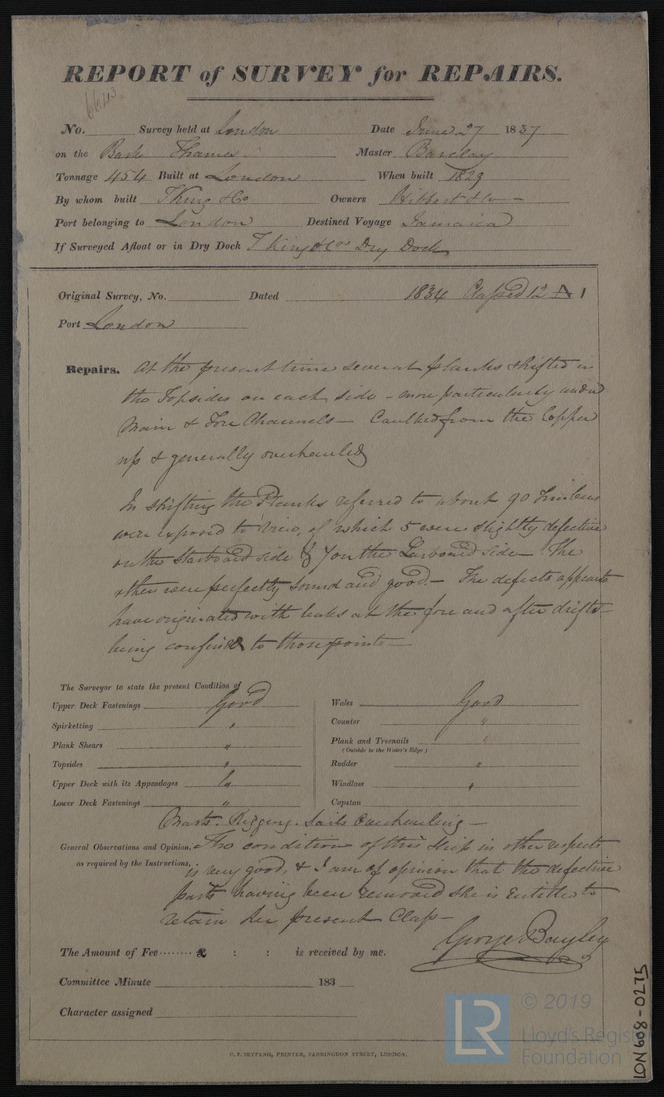 REPORT of SURVEY for REPAIRS.
6643
No. Survey held at London Date June 27 1837
on the Bark Thames Master Barclay
Tonnage 454 Built at London When built 1829
By whom built T King & Co Owners Hibbert & Co
Port belonging to London Destined Voyage Jamaica
If Surveyed Afloat or in Dry Dock T King & Co's Dry Dock
Original Survey, No. Dated 1834 Classed 12 A 1
Port London
Repairs. At the present time several planks shifted in
the Topsides on each side - more particularly under
Main & Fore Channels - Caulked from the Copper
up & generally overhauled
In shifting the Planks referred to about 90 Timbers
were exposed to view, of which 5 were slightly defective
on the starboard side & 7 on the Larboard side - The
others were perfectly sound and good - The defects appear to
have originated with leaks at the fore and after drifts -
being confined to those points -
The Surveyor to state the present Condition of
Upper Deck Fastenings Good
Spirketting "
Plank Shears "
Topsides "
Upper Deck with its Appendages "
Lower Deck Fastenings "
Wales Good
Counter "
Plank and Treenails "
(Outside to the Water's Edge)
Rudder "
Windlass "
Capstan
Masts. Rigging. Sails Overhauling -
General Observations and Opinion, The condition of this Ship in other respects
as required by the Instructions, is very good, & I am of opinion that the defective
parts having been removed she is entitled to
retain her present Class -
George Bayley
The Amount of Fee ........ £ : : is received by me.
Committee Minute 183
Character assigned
C. F. SEYFANG, PRINTER, FARRINGDON STREET, LONDON.
LON 608-0275
LR
© 2019
Lloyd's Register
Foundation